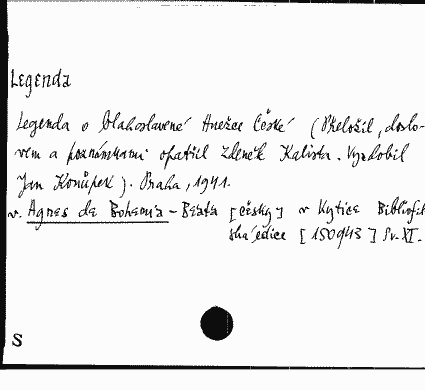 Legenda
Legenda o blahoslavené Anežce České (Přeložil, doslo-
vem a poznámkami opatřil Zdeněk Kalista. Vyzdobil
Jan Konůpek). Praha, 1941.
v. Agnes de Bohemia - Beata [česky] v Kytice Bibliofil
ská edice [150943] Sv. XI.
S